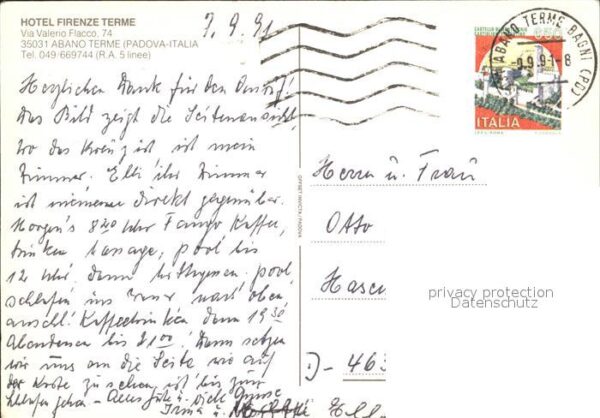 HOTEL FIRENZE TERME
Via Valerio Flacco, 74
35031 ABANO TERME (PADOVA-ITALIA
Tel. 049 669744 (R.A. 5 linee)
7.9.91
ABANO TERME BAGNI (PD)
-9.9.91-8
ITALIA
Herzlichen Dank für den Anruf!
Das Bild zeigt die Seitenansicht,
wo das Kreuz ist ist mein
Zimmer. Elli ihr Zimmer
ist meinem direkt gegenüber.
Morgens 8 Uhr Fango Kaffee
trinken Massage, pool bis
12 Uhr, dann pool
schlafen ins nach oben,
anschl. Kaffeetrinken dann 19 30
Abendessen bis 21 00! Dann setzen
wir uns an die Seite wie auf
der Karte zu sehen ist bis zum
schlafen gehen - Alles Gute u. viele Grüsse
Irma u.
OFFSET INVICTA - PADOVA
Herrn u. Frau
Otto
Hasen
D - 463
privacy protection
Datenschutz